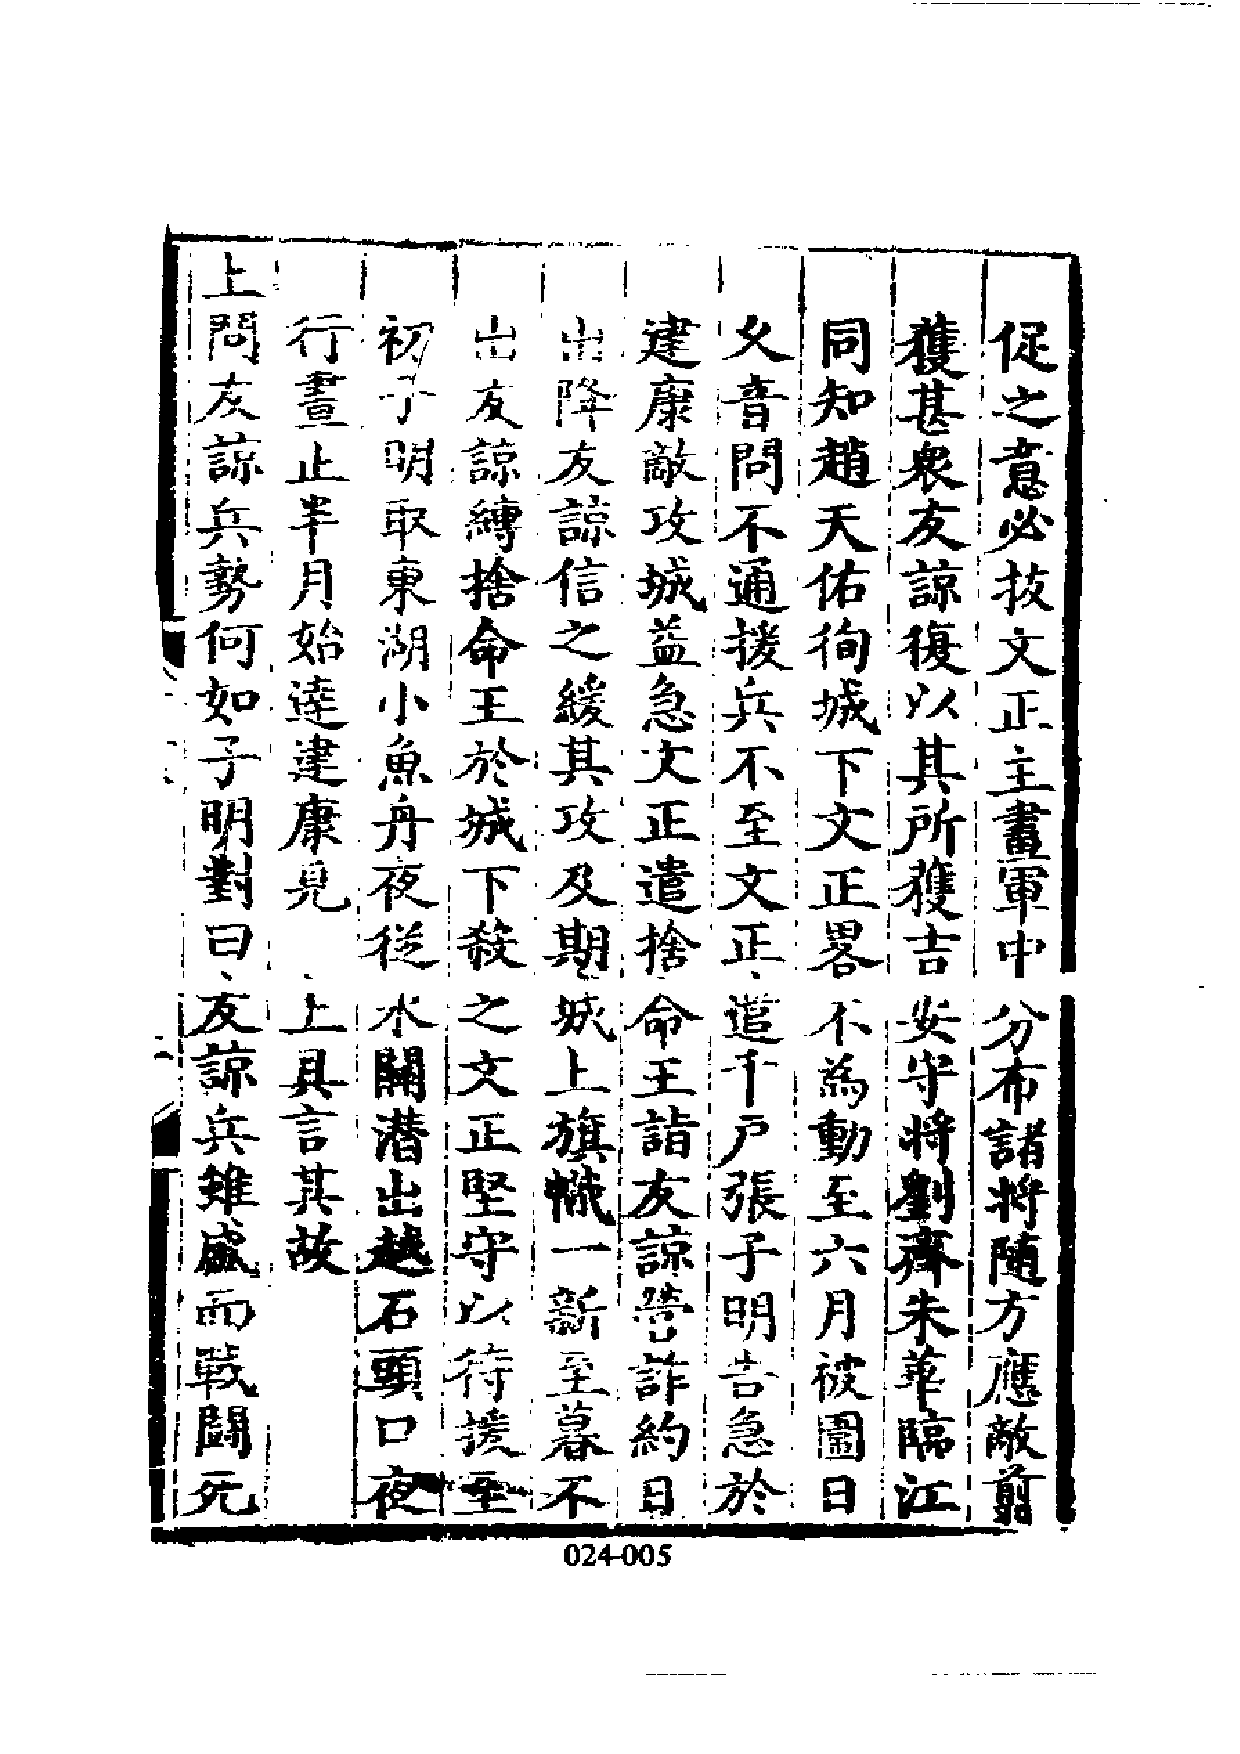 促之意必拔文正主畫軍中分布諸將隨方應敵剪
獲甚衆友諒復以其所獲吉安守將劉齊朱華臨江
同知趙天佑徇城下文正畧不為動至六月被圍日
久音問不通援兵不至文正遣千戶張子明告急於
建康敵攻城益急文正遣捨命王詣友諒營詐約日
出降友諒信之緩其攻及期城上旗幟一新至暮不
出友諒縛捨命王於城下殺之文正堅守以待援至
初子明取東湖小魚舟夜從水關潛出越石頭口夜
行晝止半月始達建康見 上具言其故
上問友諒兵勢何如子明對曰友諒兵雖盛而戰鬭死
024-005